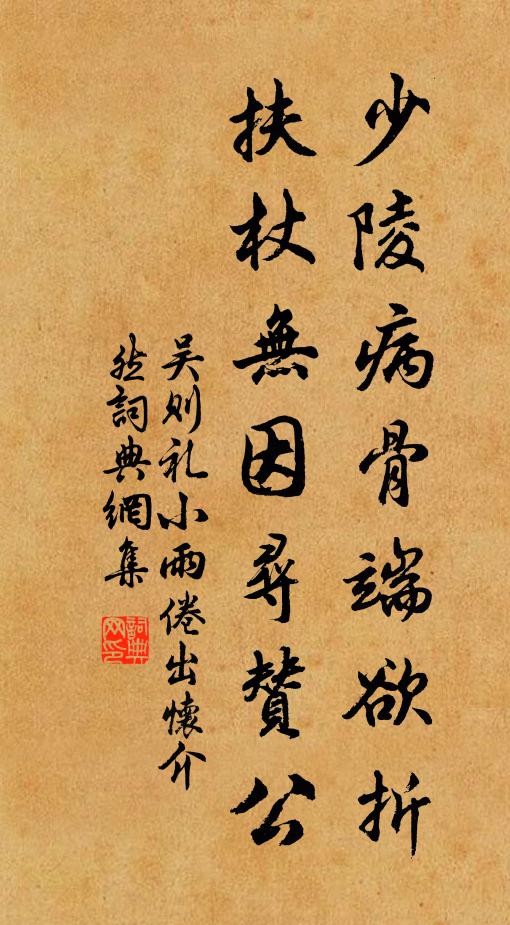 少陵病骨端欲折
扶杖無因尋贊公
吴则礼小雨倦出懷介
然詞典網集
詞典
网印